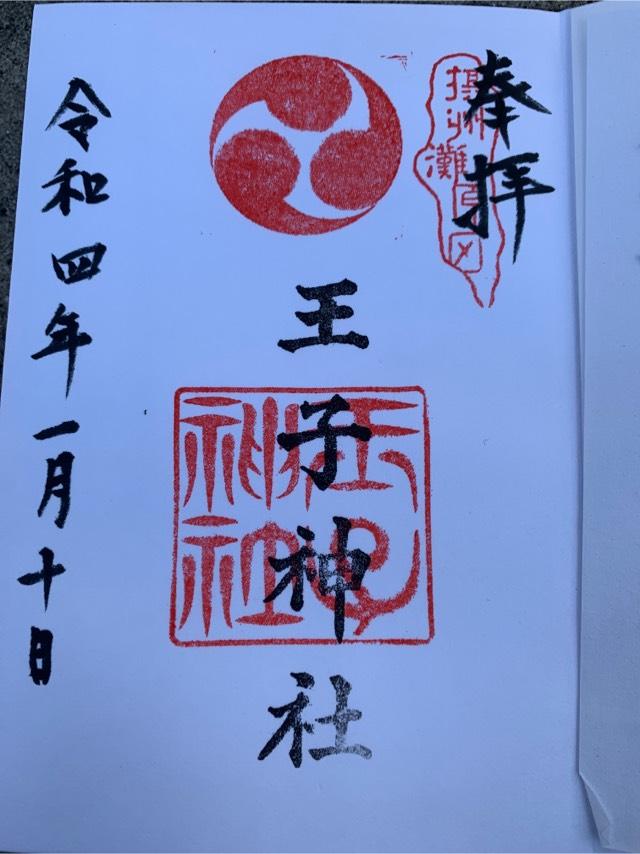 奉拝
摂州灘
王子神社
王子神社
令和四年一月十日